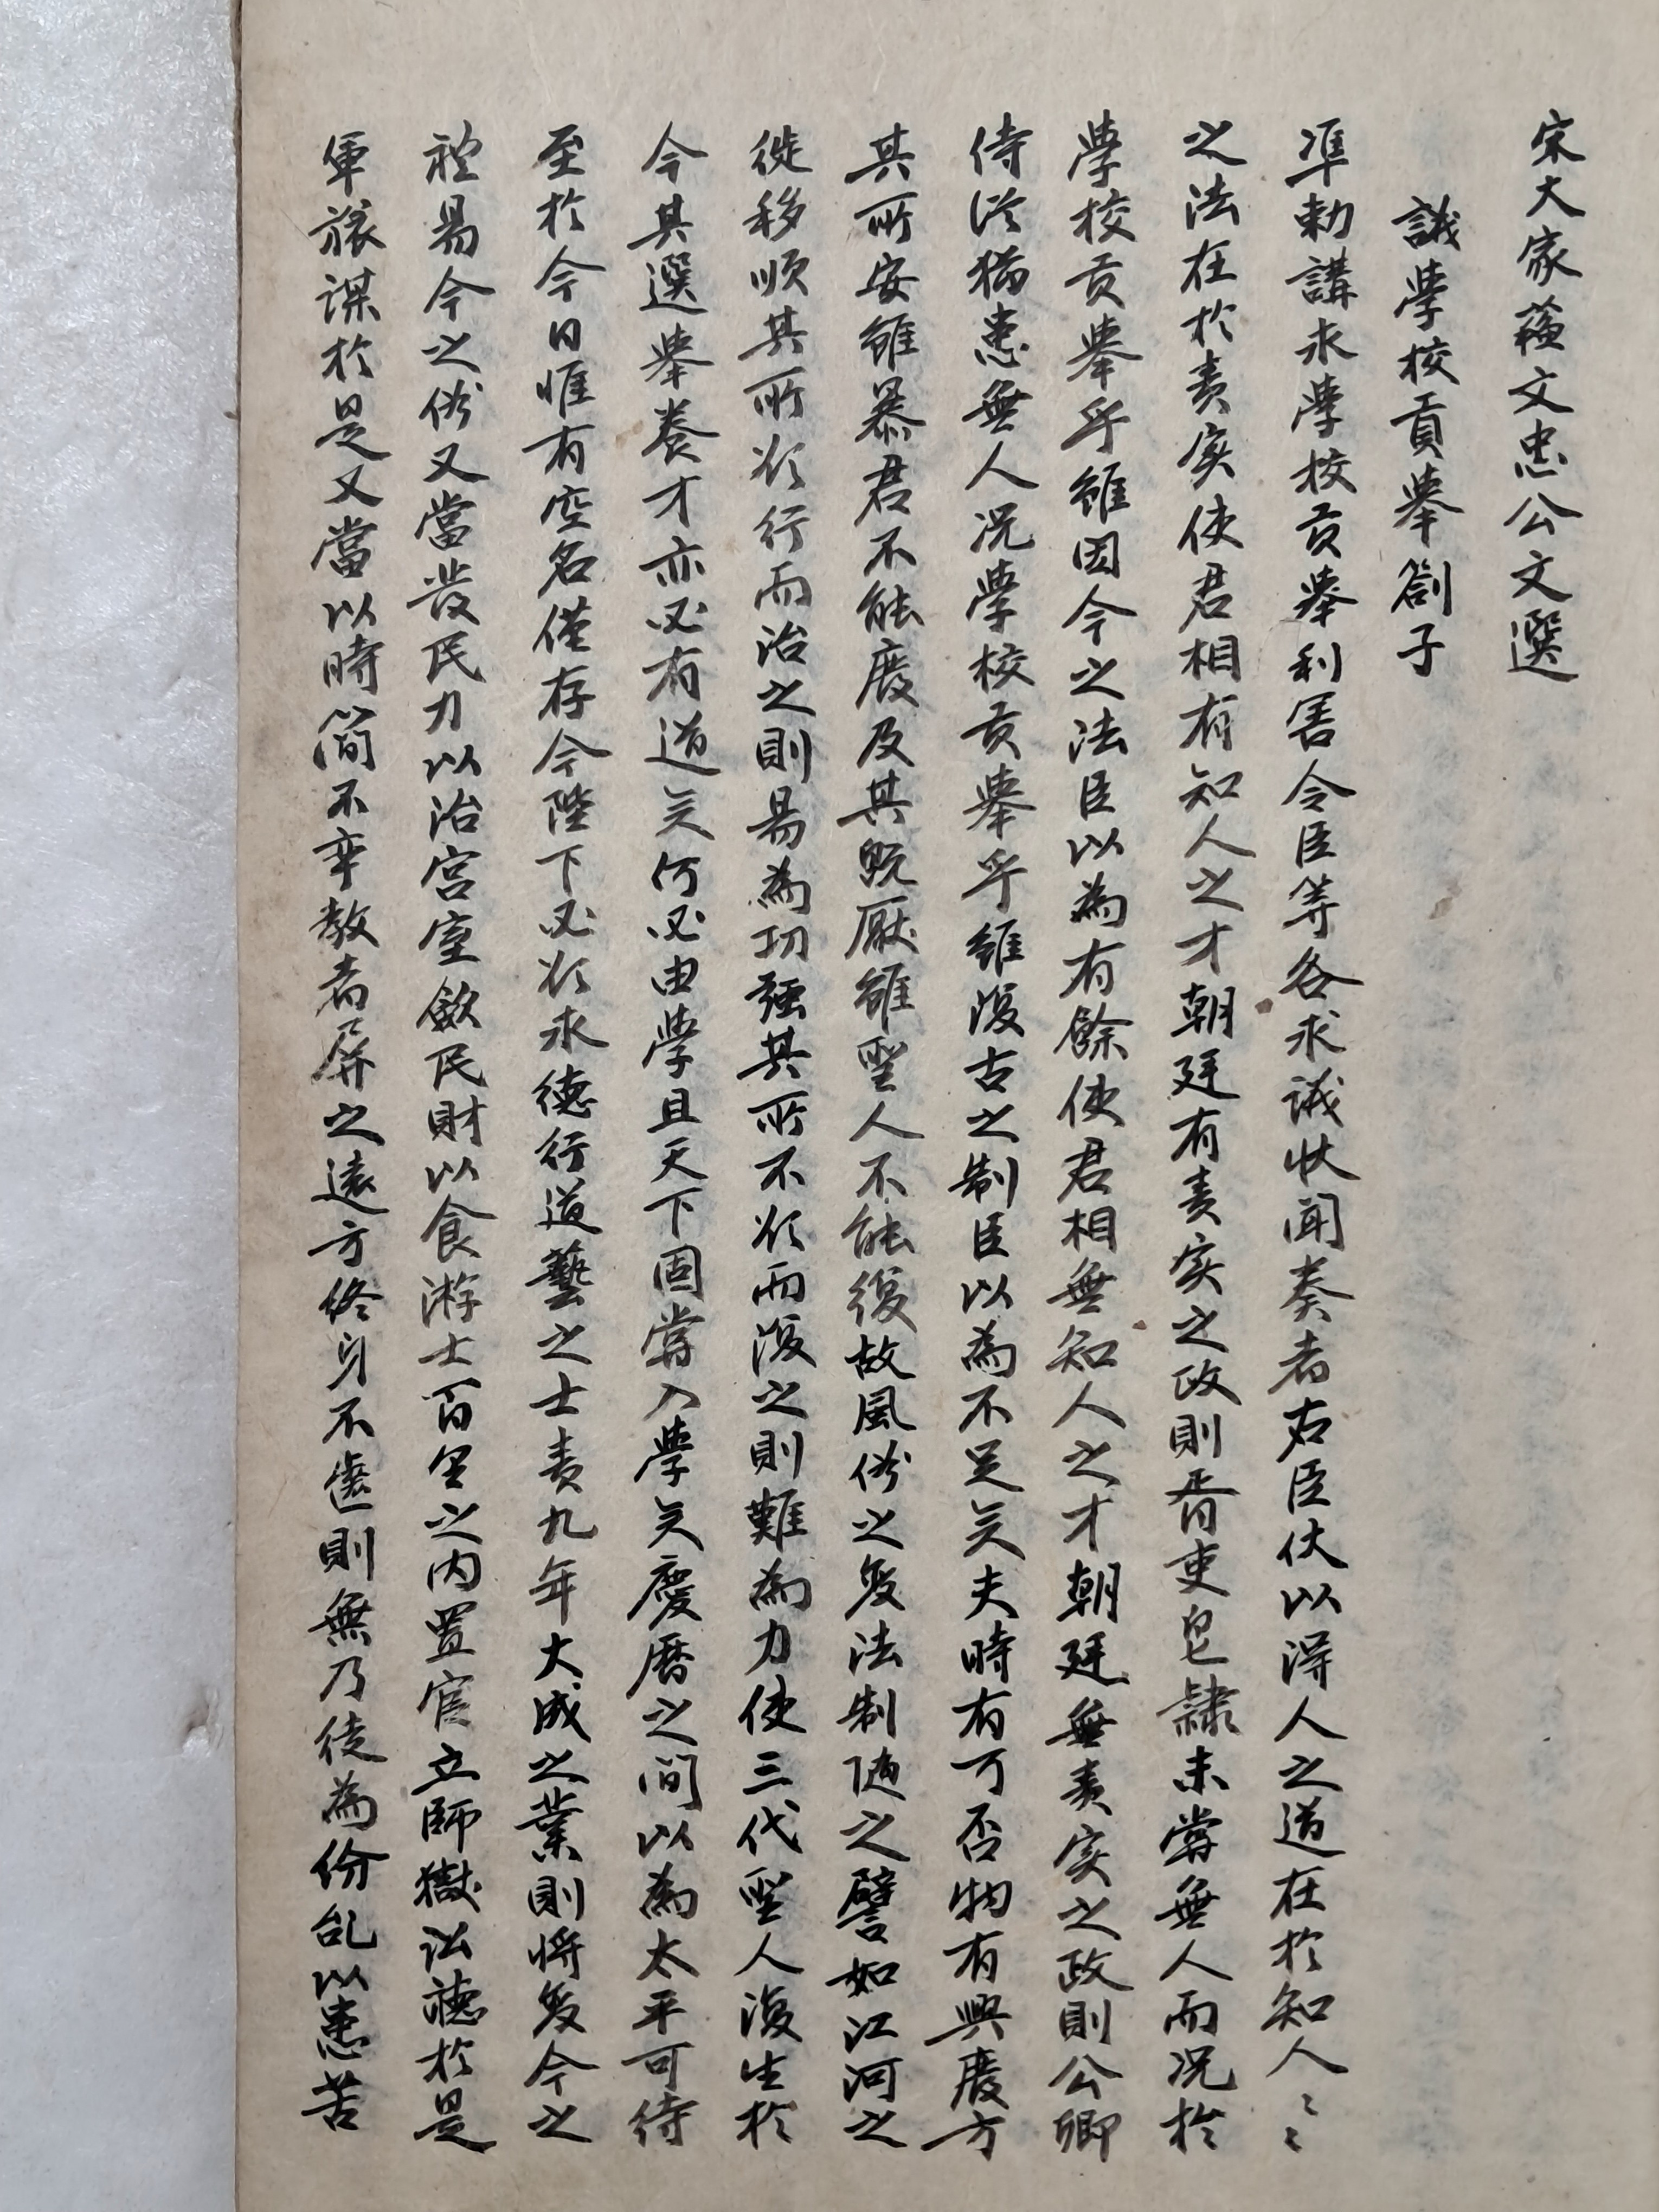 宋大家蘇文忠公文選
議學校貢舉劄子
準勅講求學校貢舉利害令臣等各求議狀聞奏者右臣伏以得人之道在於知人〻〻
之法在於責实使君相有知人之才朝廷有責实之政則胥吏皂隷未嘗無人而况於
學校貢舉乎雖因今之法臣以為有餘使君相無知人之才朝廷無責实之政則公卿
侍從猶患無人况學校貢舉乎雖復古之制臣以為不足矣夫時有可否物有興廢方
其所安雖暴君不能廢及其既厭雖聖人不能復故風俗之变法制随之譬如江河之
徙移順其所欲行而治之則易為功强其所不欲而復之則難為力使三代聖人復生於
今其選舉養才亦必有道矣何必由學且天下固嘗入學矣慶曆之間以為太平可待
至於今日惟有空名僅存今陛下必欲求德行道藝之士責九年大成之業則將变今之
礼易今之俗又當發民力以治宮室歛民財以食游士百里之内置官立師獄訟聴於是
軍旅謀於是又當以時簡不率教者屏之遠方終身不齒則無乃徒為紛乱以患苦